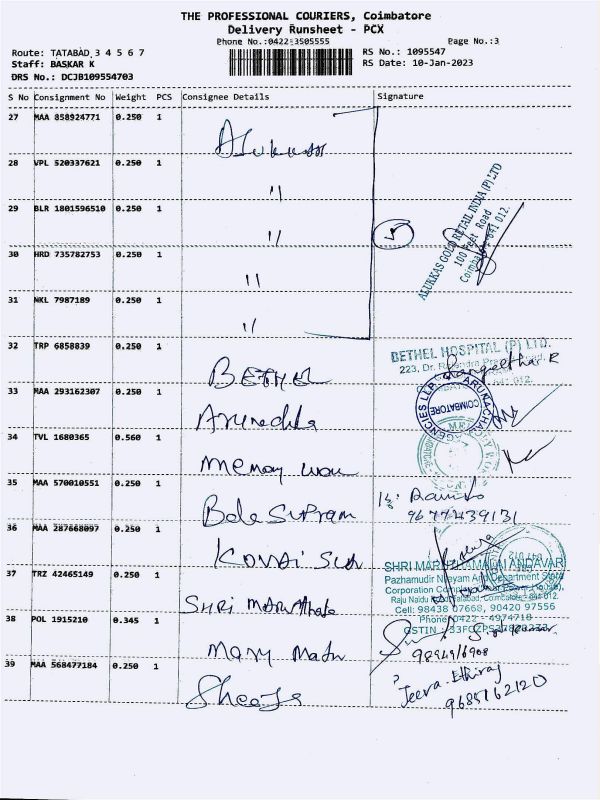 THE PROFESSIONAL COURIERS, Coimbatore
Delivery Runsheet - PCX
Phone No.:0422-3505555
Page No.:3
Route: TATABAD 3 4 5 6 7
RS No.: 1095547
Staff: BASKAR K
RS Date: 10-Jan-2023
DRS No.: DCJB109554703
S No Consignment No Weight PCS Consignee Details Signature
27 MAA 858924771 0.250 1 Alukkas
28 VPL 520337621 0.250 1 "
29 BLR 1801596510 0.250 1 " 5
ALUKKAS GOLD RETAIL INDIA (P) LTD
100 Feet Road
Coimbatore 641 012.
30 HRD 735782753 0.250 1 "
31 NKL 7987189 0.250 1 "
32 TRP 6858839 0.250 1 BETHEL
BETHEL HOSPITAL (P) LTD.
223, Dr. Road,
Sangeetha R
33 MAA 293162307 0.250 1
ARUNACHALA AGENCIES LLP
COIMBATORE
34 TVL 1680365 0.560 1
35 MAA 570010551 0.250 1 Bala Supram
9677439131
36 MAA 287668097 0.250 1 KOVAI Sun
37 TRZ 42465149 0.250 1 SHRI Maruthala
SHRI MARUDHAMALAI ANDAVAR
Pazhamudir Nilayam And Department Store
Corporation Complex
Raju Naidu
Cell: 98438 07668, 90420 97556
Phone: 0422 - 4974718
GSTIN :
38 POL 1915210 0.345 1 Mary Matu
39 MAA 568477184 0.250 1 Sheeja
Jeeva. Ethiraj
9685762120